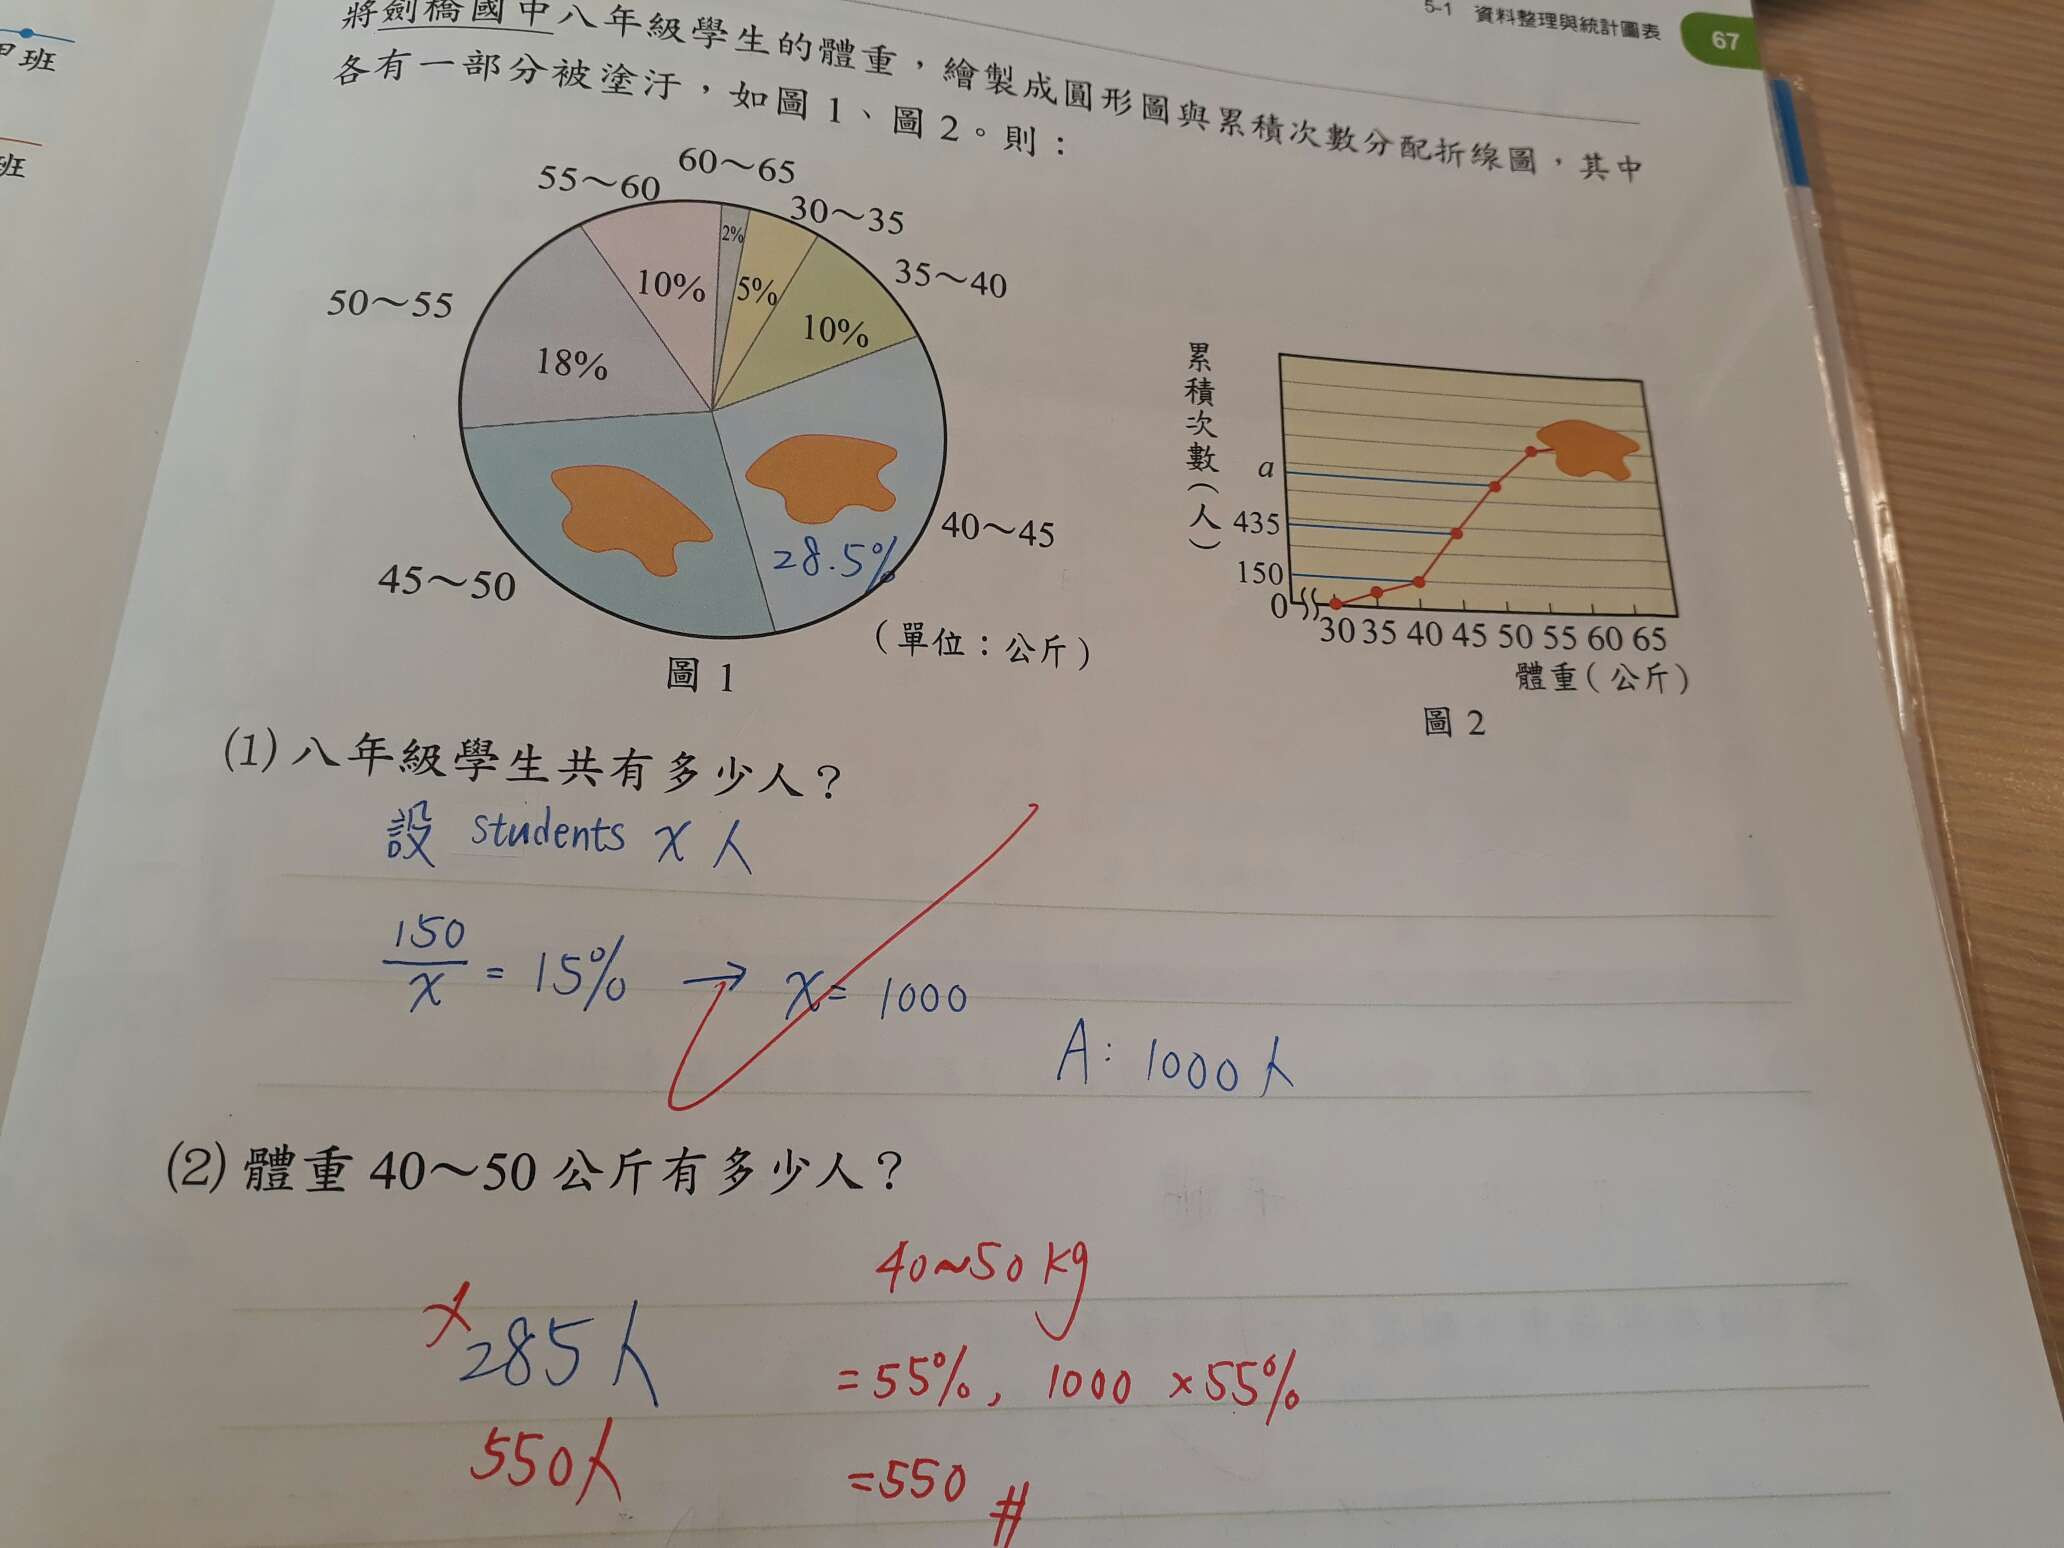 5-1 資料整理與統計圖表 67
將劍橋國中八年級學生的體重，繪製成圓形圖與累積次數分配折線圖，其中
各有一部分被塗汙，如圖1、圖2。則：
甲班
班
60～65
55～60
30～35
2%
35～40
10%
5%
50～55
10%
18%
40～45
28.5%
45～50
(單位：公斤)
圖 1
累積次數(人)
a
435
150
0
30 35 40 45 50 55 60 65
體重(公斤)
圖 2
(1) 八年級學生共有多少人？
設 students x 人
150/x = 15% → x = 1000
A: 1000人
(2) 體重 40～50 公斤有多少人？
40~50 kg
x 285人
= 55%, 1000 × 55%
550人
= 550 #